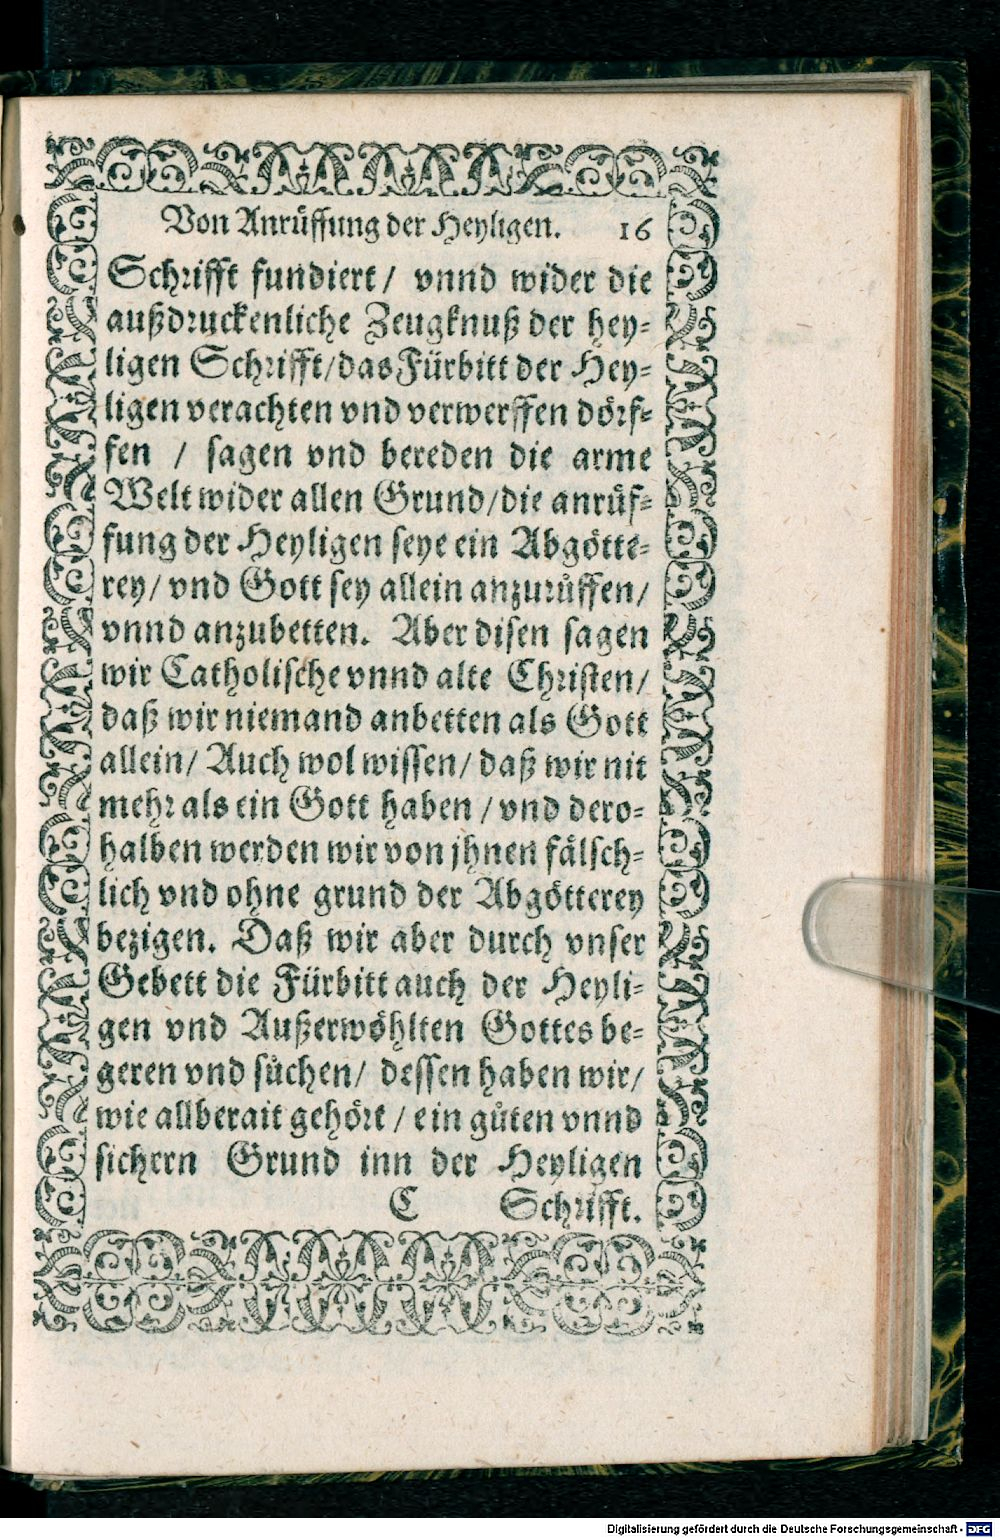 Von Anrüffung der Heyligen. 16
Schrifft fundiert / vnnd wider die
außdruckenliche Zeugknuß der hey⸗
ligen Schrifft / das Fürbitt der Hey⸗
ligen verachten vnd verwerffen dörf⸗
fen / sagen vnd bereden die arme
Welt wider allen Grund / die anrůf⸗
fung der Heyligen seye ein Abgötte⸗
rey / vnd Gott sey allein anzurůffen /
vnnd anzubetten. Aber disen sagen
wir Catholische vnnd alte Christen /
daß wir niemand anbetten als Gott
allein / Auch wol wissen / daß wir nit
mehr als ein Gott haben / vnd dero⸗
halben werden wir von jhnen fälsch⸗
lich vnd ohne grund der Abgötterey
bezigen. Daß wir aber durch vnser
Gebett die Fürbitt auch der Heyli⸗
gen vnd Außerwöhlten Gottes be⸗
geren vnd sůchen / dessen haben wir /
wie allberait gehört / ein gůten vnnd
sichern Grund inn der Heyligen
C Schrifft.
Digitalisierung gefördert durch die Deutsche Forschungsgemeinschaft - DFG